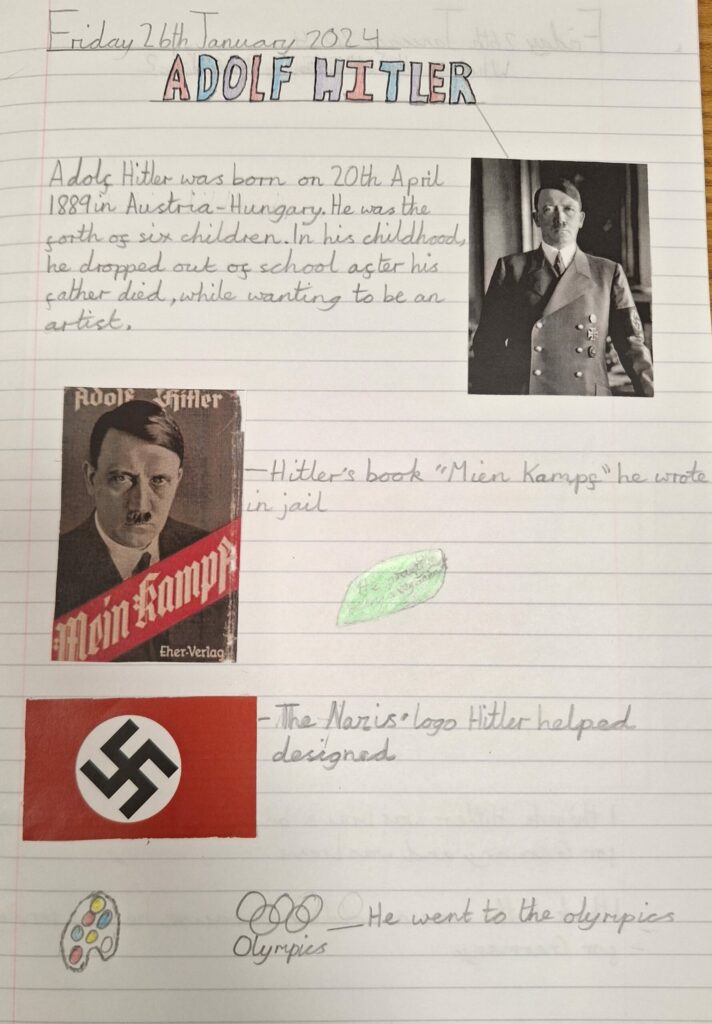 Friday 26th January 2024
ADOLF HITLER
Adolf Hitler was born on 20th April
1889 in Austria-Hungary. He was the
forth of six children. In his childhood,
he dropped out of school after his
father died, while wanting to be an
artist.
Adolf Hitler
Mein Kampf
Eher-Verlag
-Hitler's book "Mien Kampf" he wrote
in jail
He
- The Nazis' logo Hitler helped
designed
Olympics
- He went to the olympics